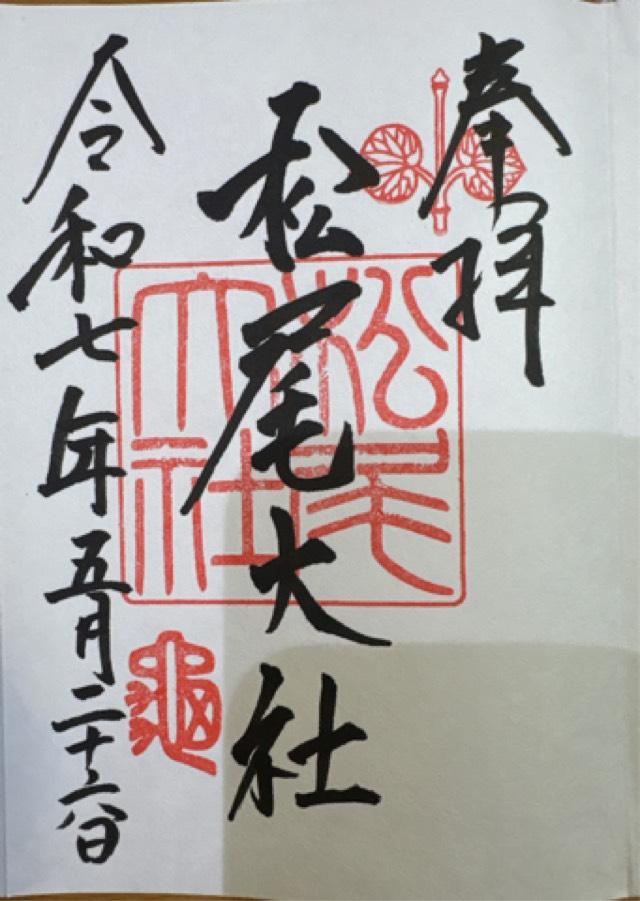 奉拝
松尾大社
松尾大社
令和七年五月二十六日
龜